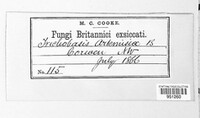 M. C. COOKE.
Fungi Britannici exsiccati.
Trichobasis Artemisiæ B
Corwen NW
July 1866
No. 115